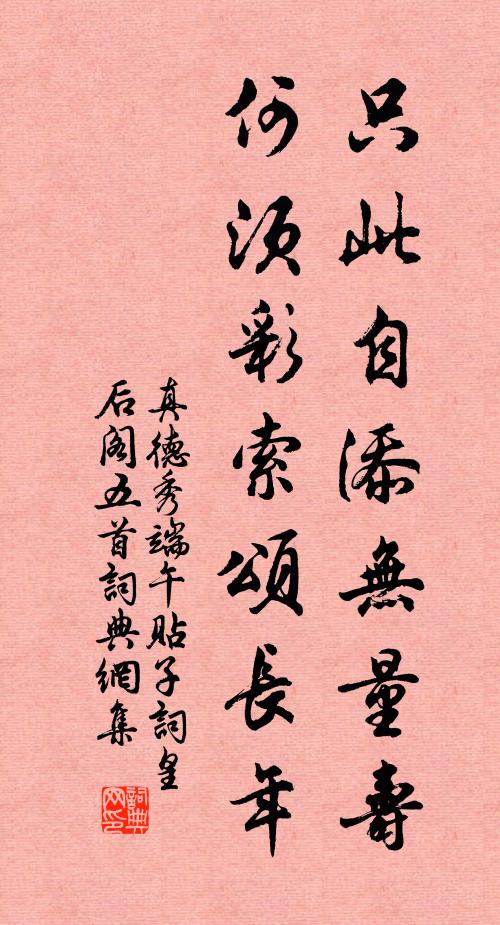 只此自添無量壽
何須彩索頌長年
真德秀端午貼子詞皇
后閣五首詞典網集
詞典
网印